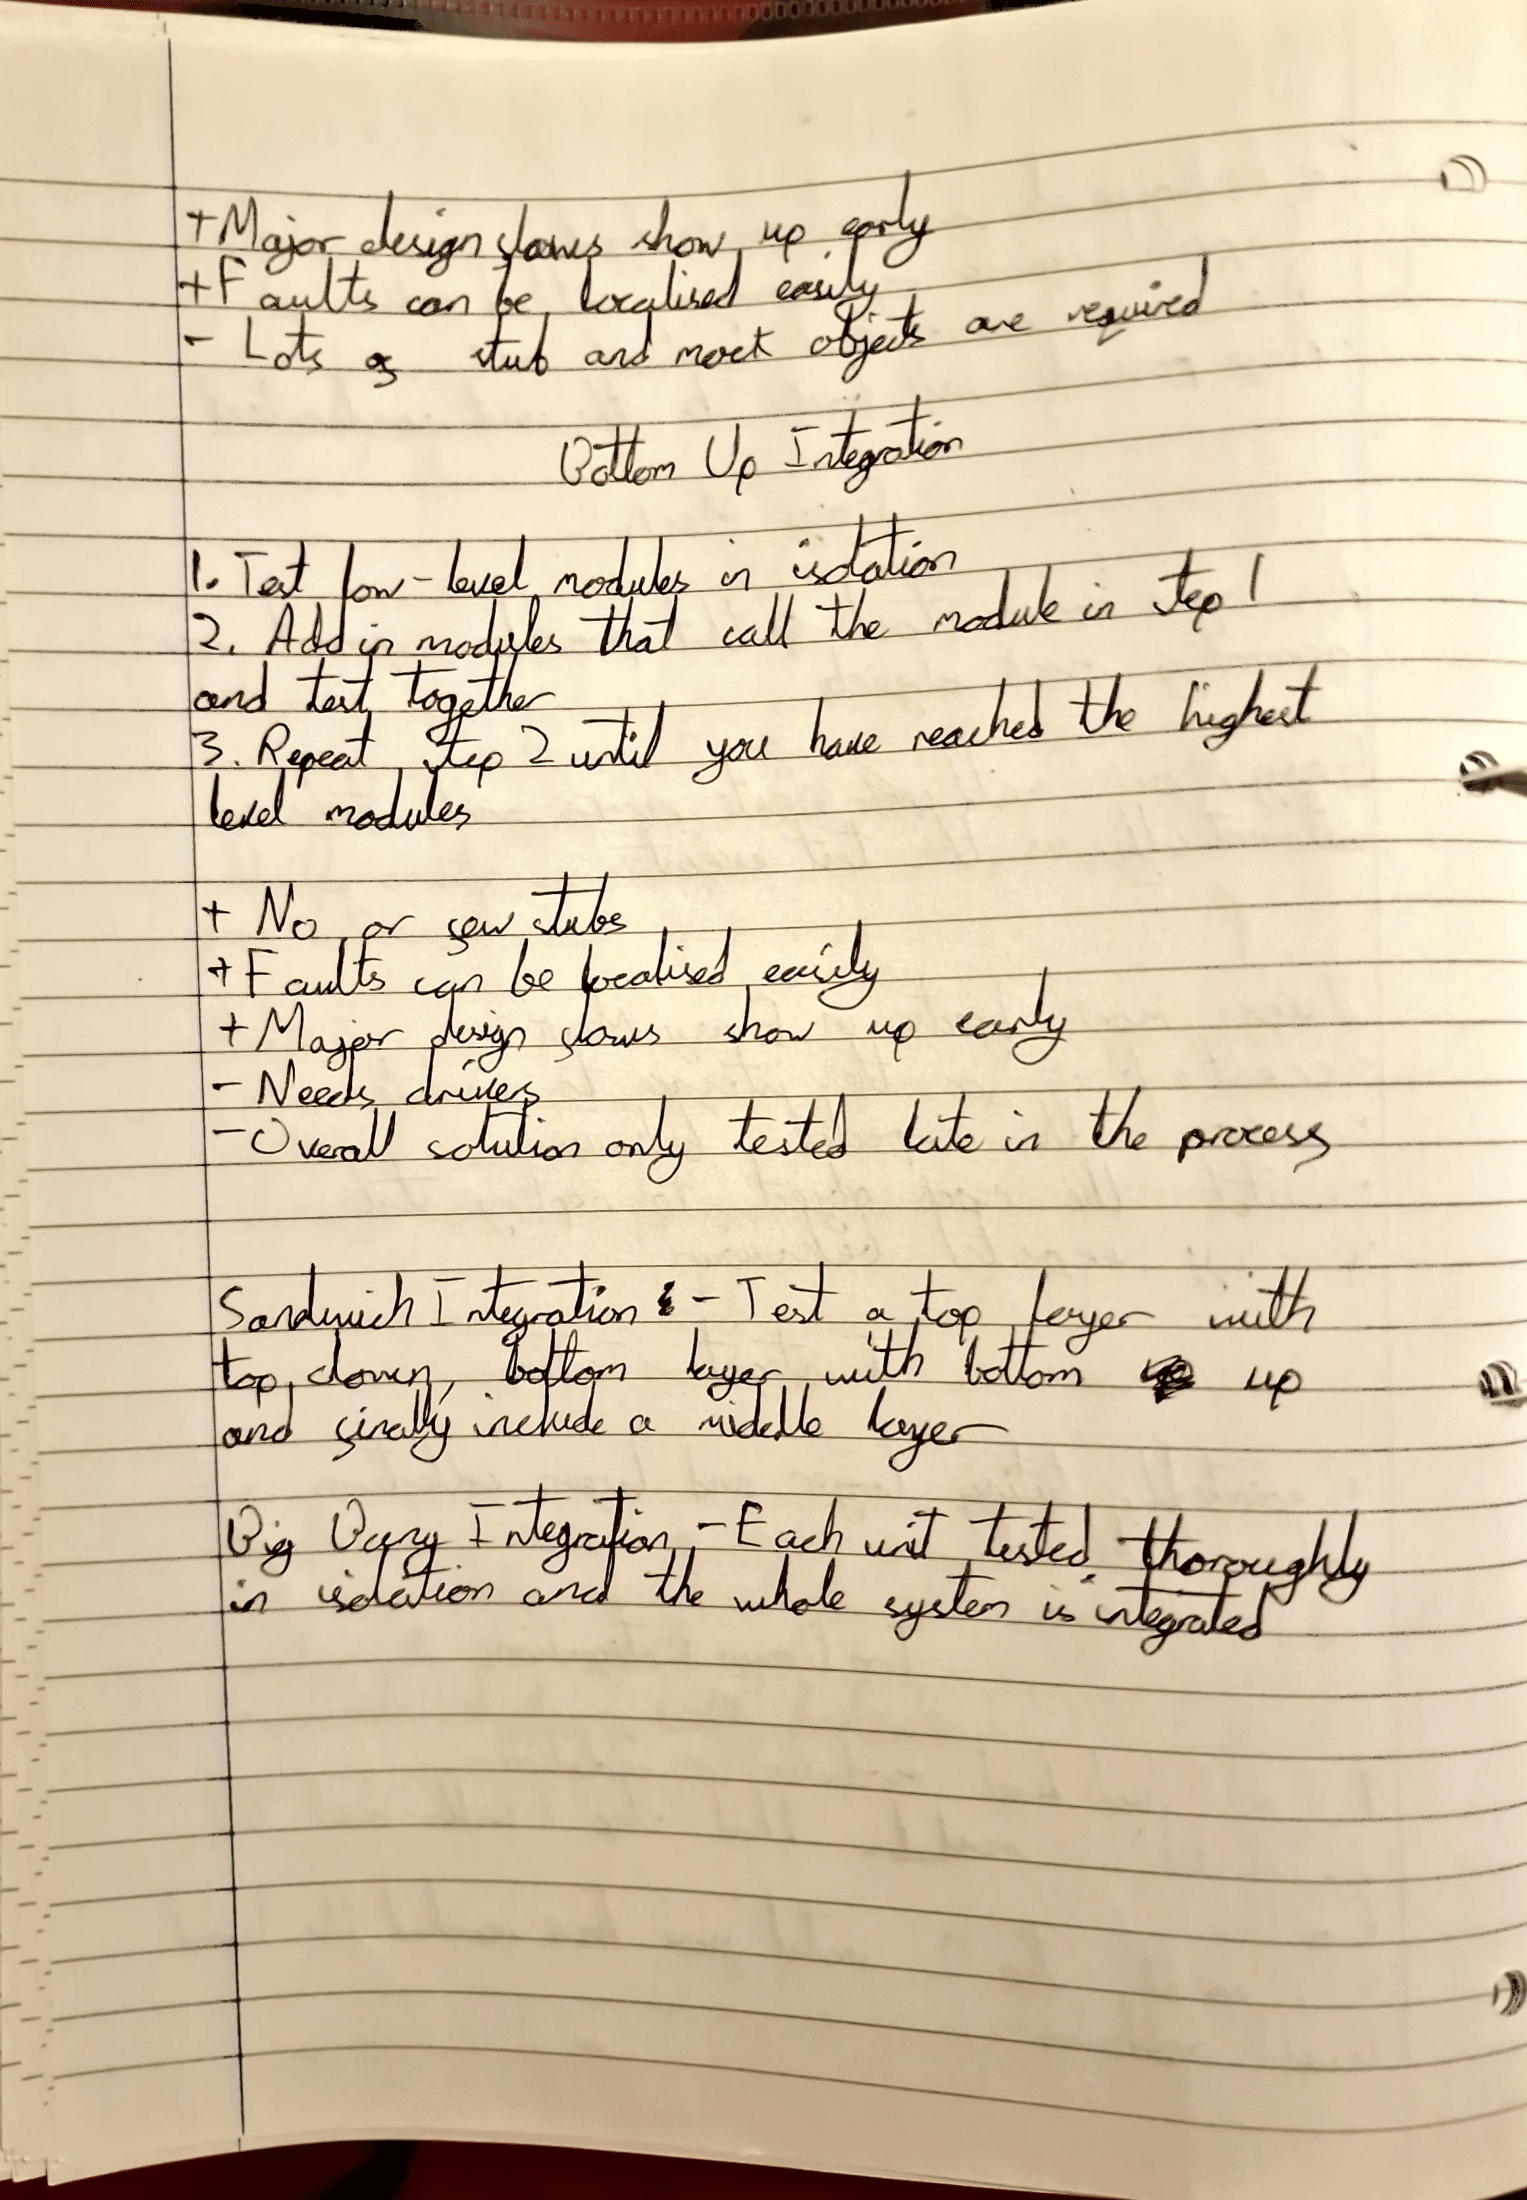 + Major design flaws show up early
+ Faults can be localised easily
- Lots of stub and mock objects are required
Bottom Up Integration
1. Test low-level modules in isolation
2. Add in modules that call the module in step 1
and test together
3. Repeat step 2 until you have reached the highest
level modules
+ No or few stubs
+ Faults can be localised easily
+ Major design flaws show up early
- Needs drivers
- Overall solution only tested late in the process
Sandwich Integration - Test a top layer with
top down, bottom layer with bottom up
and finally include a middle layer
Big Bang Integration - Each unit tested thoroughly
in isolation and the whole system is integrated